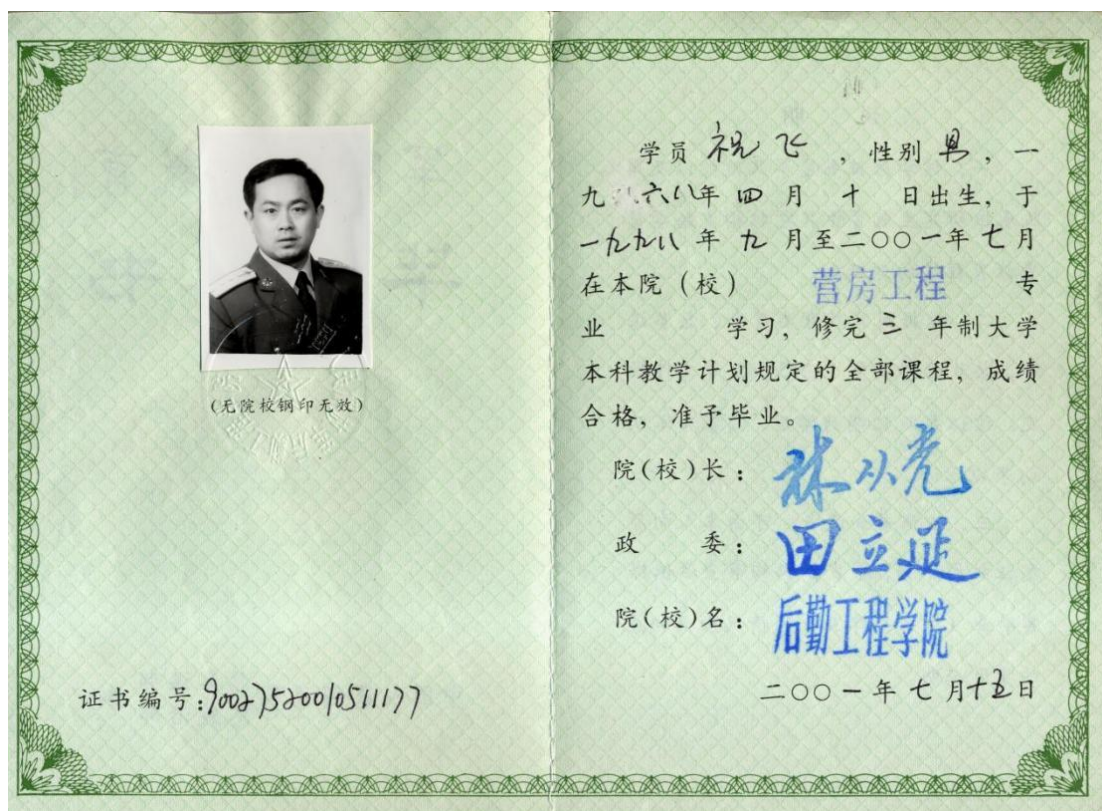 (无院校钢印无效)
证书编号:90027520010511177
学员 祝飞 ，性别 男 ，一
九六八年 四 月 十 日出生，于
一九九八 年 九 月至二〇〇一年七月
在本院（校） 营房工程 专
业 学习，修完 三 年制大学
本科教学计划规定的全部课程，成绩
合格，准予毕业。
院(校)长：
政 委：田立延
院(校)名：后勤工程学院
二〇〇一年 七 月十五日